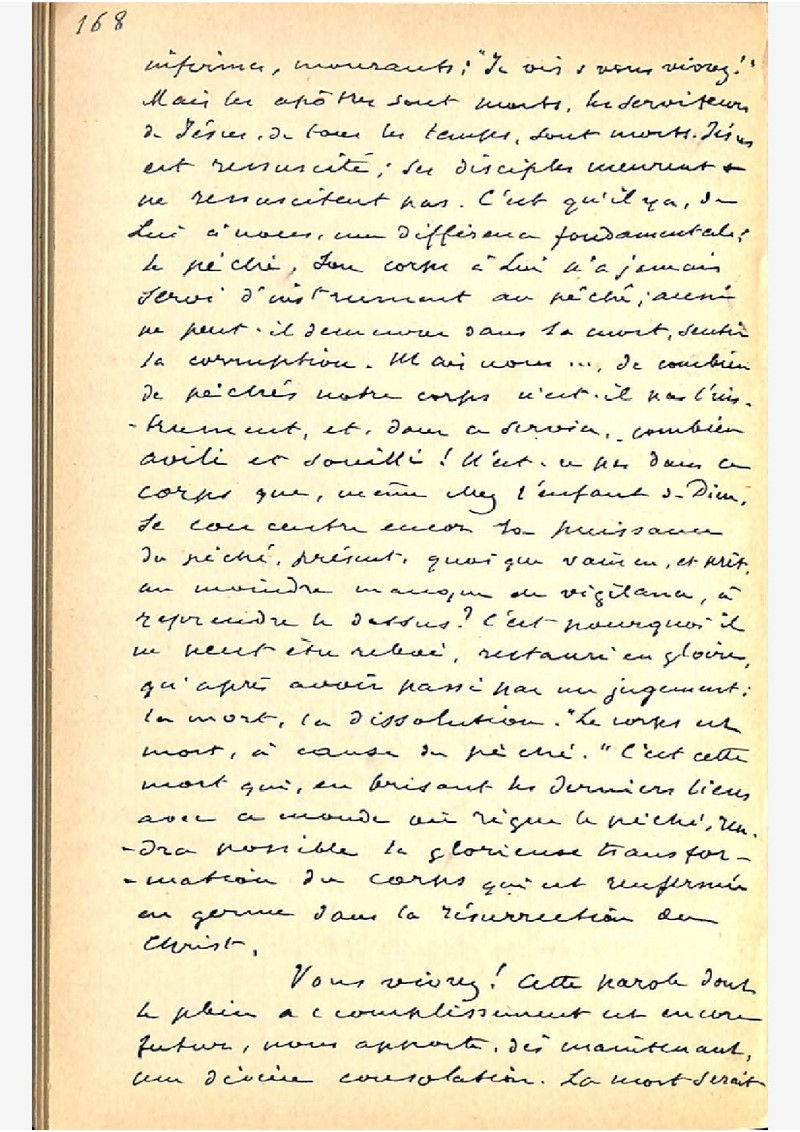 168
infirmes, mourants : "Je vis & vous vivrez!"
Mais les apôtres sont morts, les serviteurs
de Jésus, de tous les temps, sont morts. Jésus
est ressuscité ; ses disciples meurent &
ne ressuscitent pas. C'est qu'il y a, de
Lui à nous, une différence fondamentale :
le péché, Son corps à Lui n'a jamais
servi d'instrument au péché ; aussi
ne peut-il demeurer dans la mort, sentir
la corruption. Mais nous..., de combien
de péchés notre corps n'est-il pas l'ins-
-trument, et, dans ce service, combien
avili et souillé ! N'est-ce pas dans ce
corps que, même chez l'enfant de Dieu,
se concentre encor la puissance
du péché, présent, quoique vaincu, et prêt,
au moindre manque de vigilance, à
reprendre le dessus ? C'est pourquoi il
ne peut être relevé, restauré en gloire,
qu'après avoir passé par un jugement :
la mort, la dissolution. "Le corps est
mort, à cause du péché." C'est cette
mort qui, en brisant les derniers liens
avec ce monde où règne le péché, ren-
-dra possible la glorieuse transfor-
-mation du corps qui est renfermée
en germe dans la résurrection du
Christ.
Vous vivrez ! Cette parole dont
le plein accomplissement est encore
futur, nous apporte, dès maintenant,
une divine consolation. La mort serait